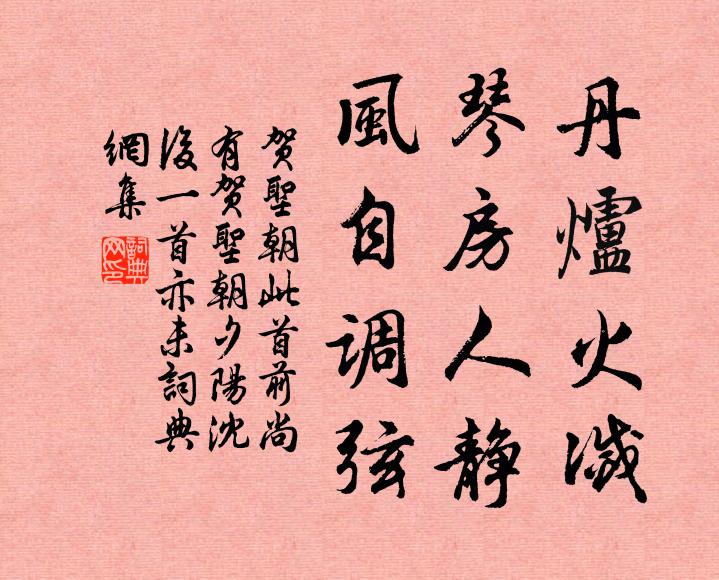 丹爐火滅
琴房人静
風自调弦
贺聖朝此首前尚
有贺聖朝夕陽沈
後一首亦未詞典
網集
詞典網印